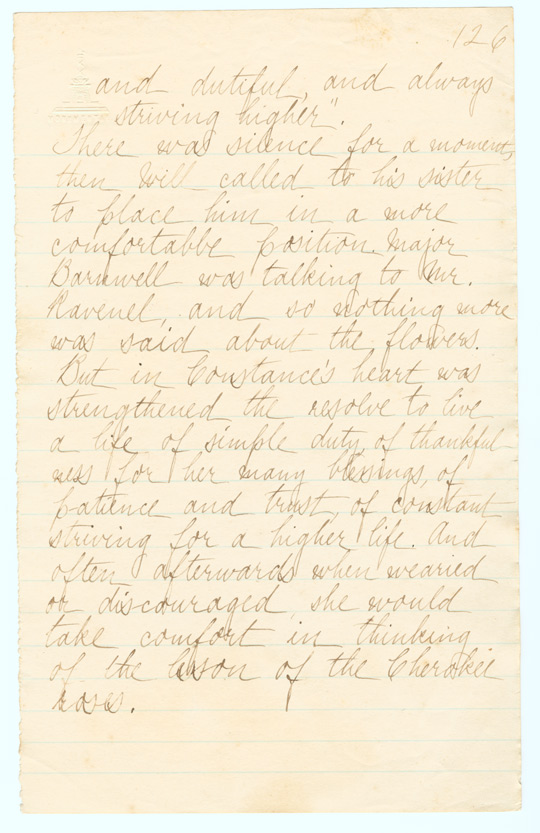 126
and dutiful, and always
striving higher".
There was silence for a moment,
then Will called to his sister
to place him in a more
comfortabbe position. Major
Barnwell was talking to Mr.
Ravenel, and so nothing more
was said about the flowers.
But in Constance's heart was
strengthened the resolve to live
a life of simple duty, of thankful-
ness for her many blessings, of
patience and trust, of constant
striving for a higher life. And
often afterwards when wearied
or discouraged, she would
take comfort in thinking
of the lesson of the Cherokee
roses.